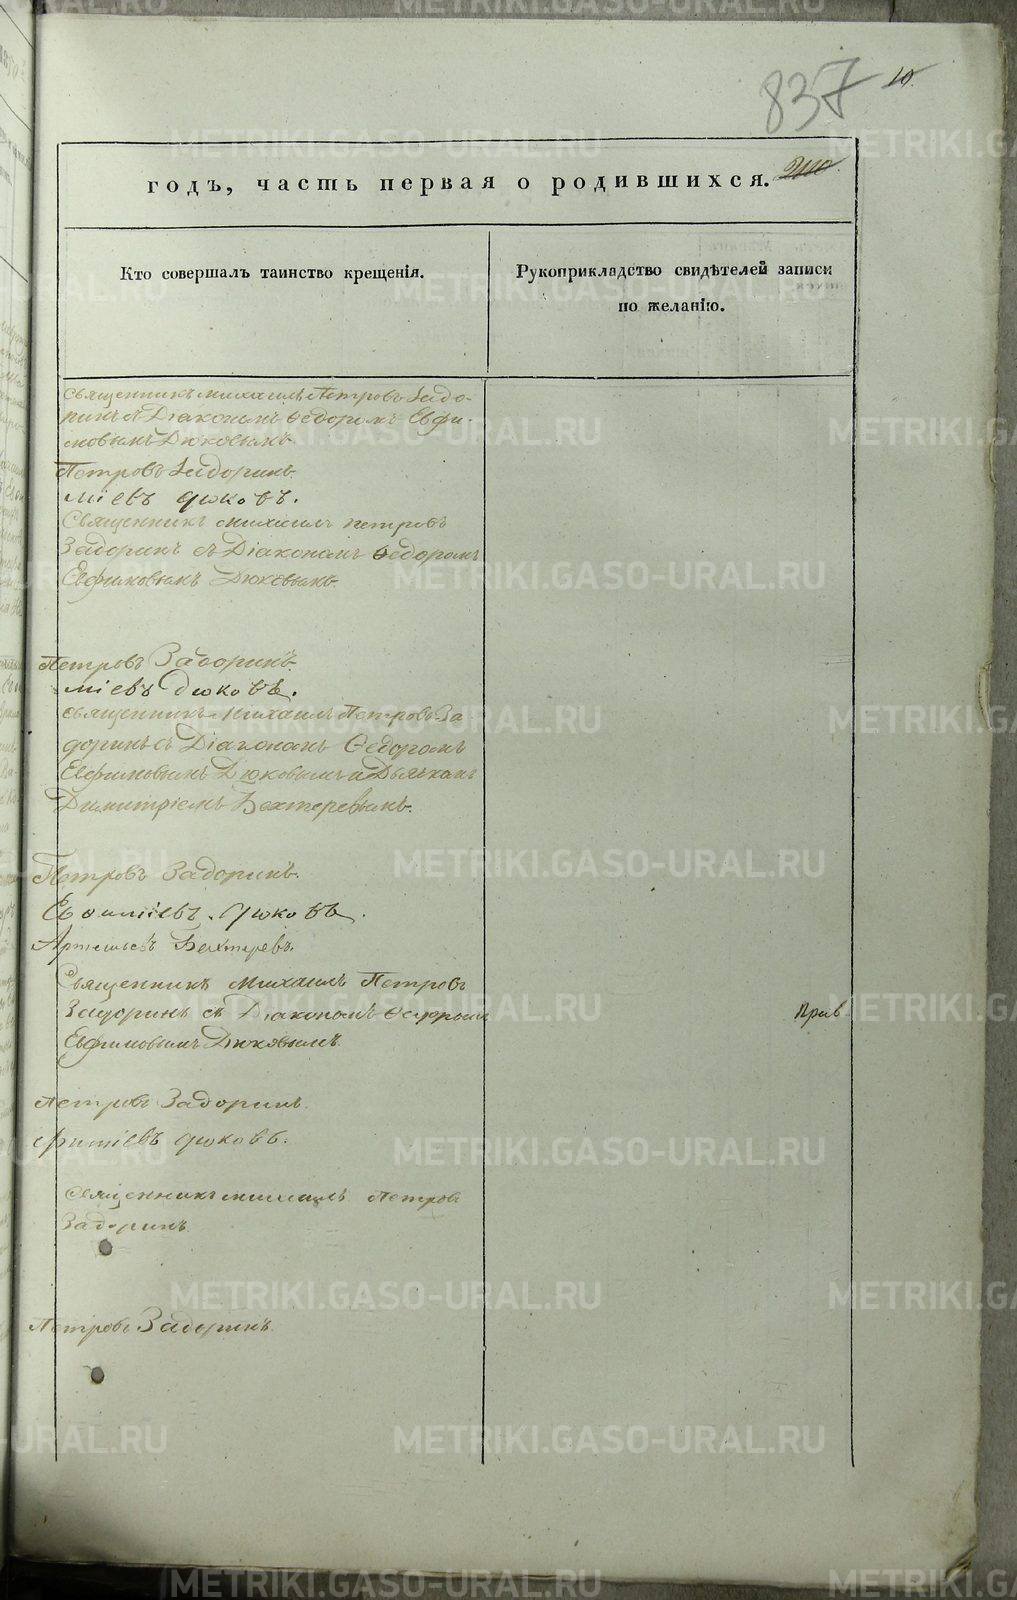 837 10.
годъ, часть первая о родившихся. 200
Кто совершалъ таинство крещенія.
Рукоприкладство свидѣтелей записи
по желанію.
Священникъ Михаилъ Петровъ Задо-
ринъ съ Діакономъ Ѳедоромъ Евфи-
мовымъ Дюковымъ.
Петровъ Задоринъ.
міевъ Дюковъ.
Священникъ Михаилъ Петровъ
Задоринъ съ Діакономъ Ѳедоромъ
Евфимовымъ Дюковымъ.
Петровъ Задоринъ.
міевъ Дюковъ.
Священникъ Михаилъ Петровъ За
доринъ съ Діакономъ Ѳедоромъ
Евфимовымъ Дюковымъ и Дьячкомъ
Димитріемъ Бехтеревымъ.
Петровъ Задоринъ.
Евѳиміевъ Дюковъ.
Артемьевъ Бехтеревъ.
Священникъ Михаилъ Петровъ
Задоринъ съ Діакономъ Ѳедоромъ
Евфимовымъ Дюковымъ.
Прив
Петровъ Задоринъ.
Дюковъ.
Священникъ Михаилъ Петровъ
Задоринъ.
Петровъ Задоринъ.
METRIKI.GASO-URAL.RU